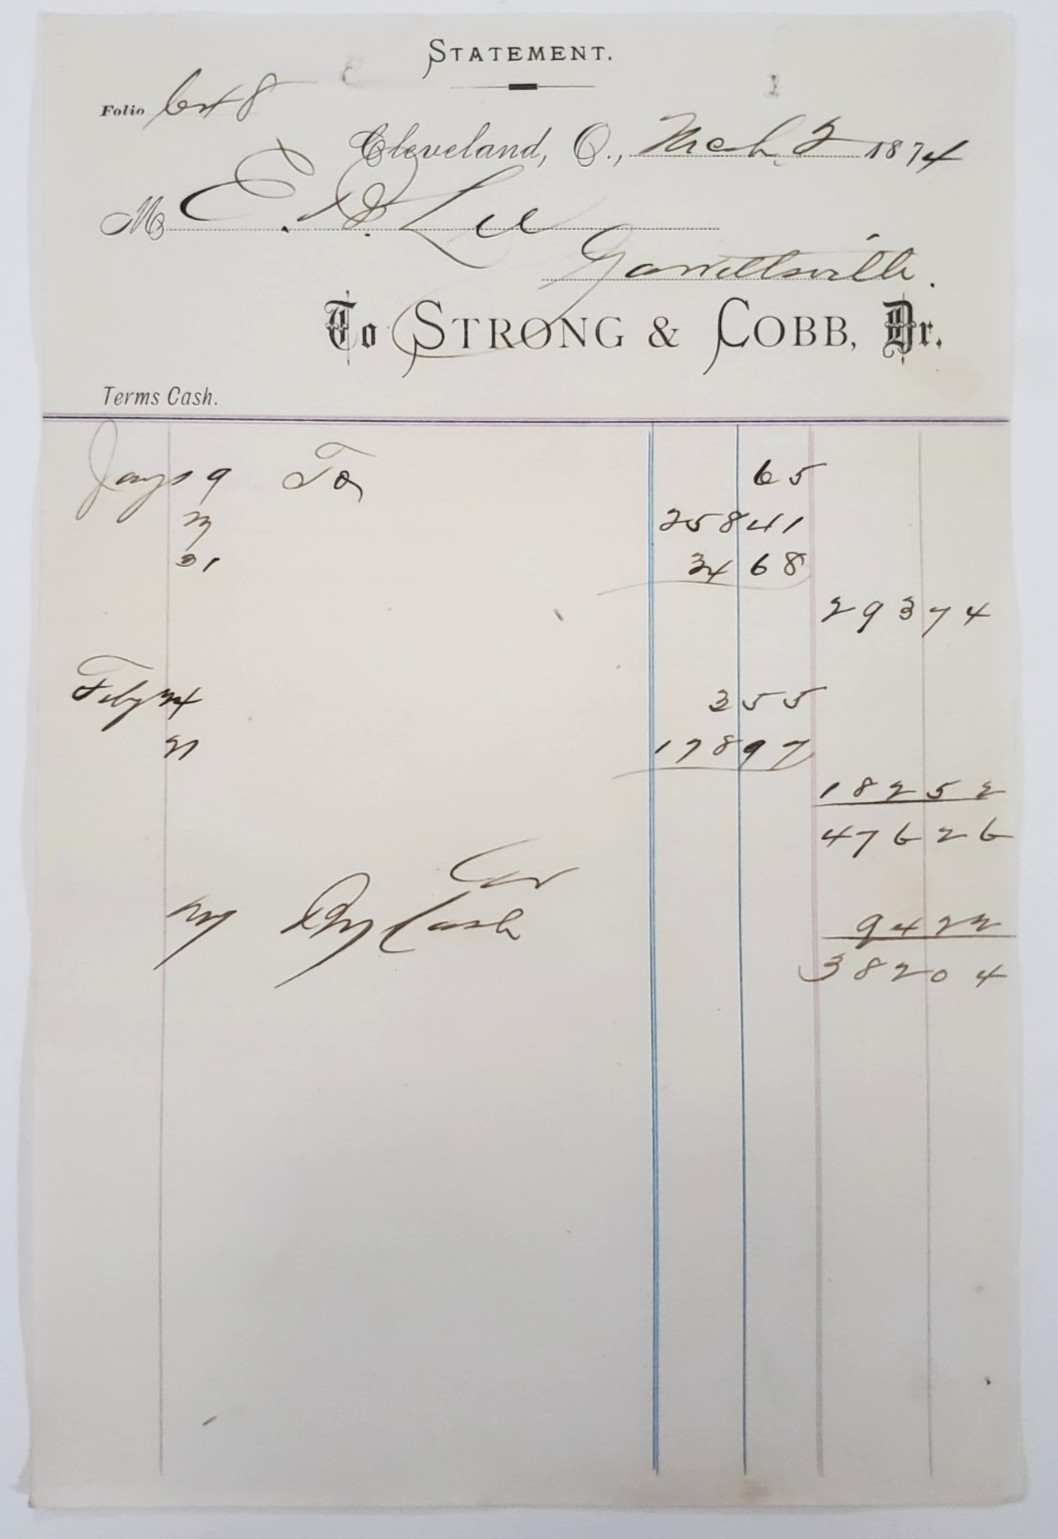 STATEMENT.
Folio 648
Cleveland, O., Mch 2 1874
M E. D. Lee
Garrettsville.
To STRONG & COBB, Dr.
Terms Cash.
Jany 9 To 65
258 41
31 34 68
293 74
Feby 3 55
178 97
182 52
476 26
Cr
By Cash 94 22
382 04